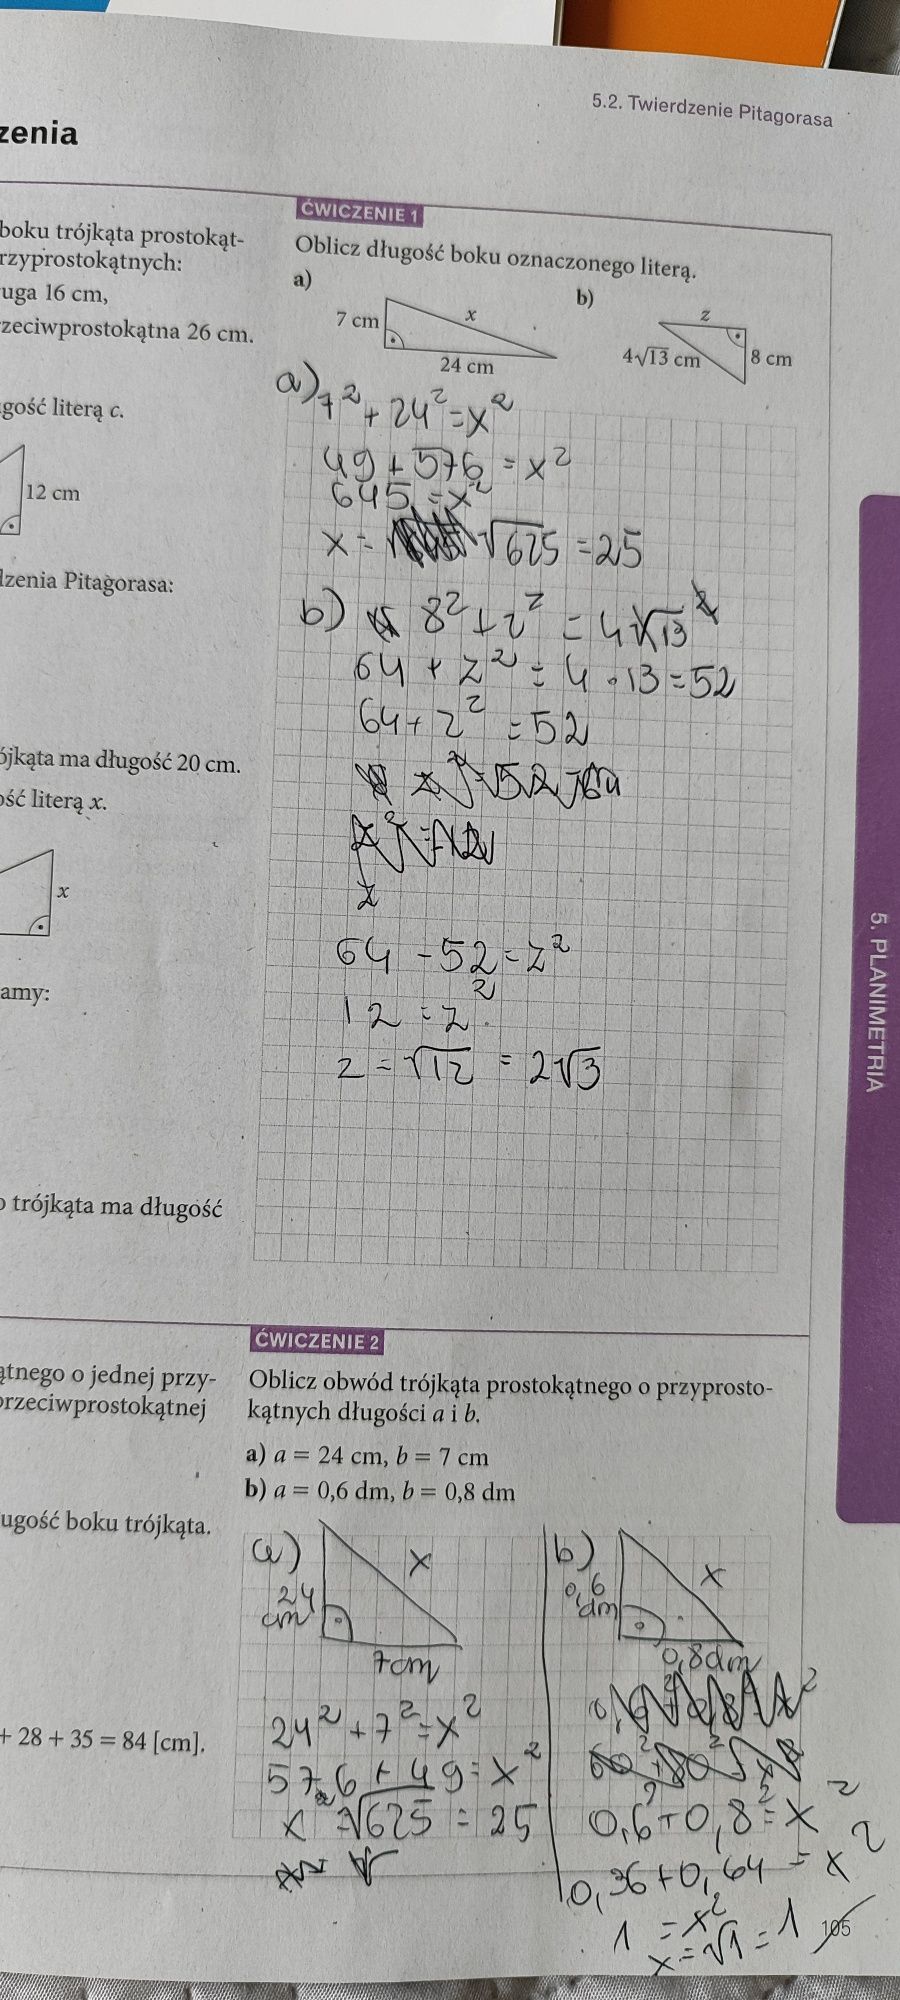 5.2. Twierdzenie Pitagorasa
zenia
boku trójkąta prostokąt-
rzyprostokątnych:
uga 16 cm,
rzeciwprostokątna 26 cm.
gość literą c.
12 cm
dzenia Pitagorasa:
ójkąta ma długość 20 cm.
ość literą x.
x
amy:
o trójkąta ma długość
ątnego o jednej przy-
przeciwprostokątnej
ugość boku trójkąta.
+ 28 + 35 = 84 [cm].
ĆWICZENIE 1
Oblicz długość boku oznaczonego literą.
a)
7 cm
x
24 cm
b)
z
4√13 cm
8 cm
a) 7² + 24² = x²
49 + 576 = x²
645 = x²
x = √625 = 25
b) 8² + z² = 4√13²
64 + z² = 4 · 13 = 52
64 + z² = 52
z
64 - 52 = z²
12 = z²
z = √12 = 2√3
ĆWICZENIE 2
Oblicz obwód trójkąta prostokątnego o przyprosto-
kątnych długości a i b.
a) a = 24 cm, b = 7 cm
b) a = 0,6 dm, b = 0,8 dm
a)
24
cm
x
7cm
24² + 7² = x²
576 + 49 = x²
x = √625 = 25
b)
0,6
dm
x
0,8dm
0,6² + 0,8² = x²
0,36 + 0,64 = x²
1 = x²
x = √1 = 1
105
5. PLANIMETRIA